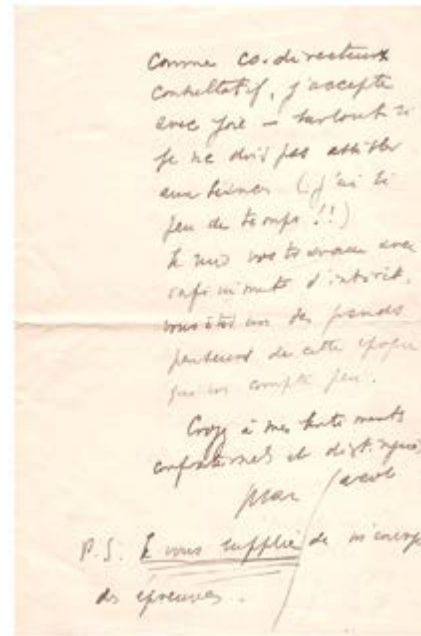 Comme co-directeur
consultatif, j'accepte
avec joie – surtout si
je ne dois pas assister
aux séances (j'ai si
peu de temps !!)
Je suis vos travaux avec
infiniment d'intérêt,
vous êtes un des grands
penseurs de cette époque
qui en compte peu.
Croyez à mes sentiments
confraternels et distingués
Max Jacob
P.S. Je vous supplie de m'envoyer
des épreuves.